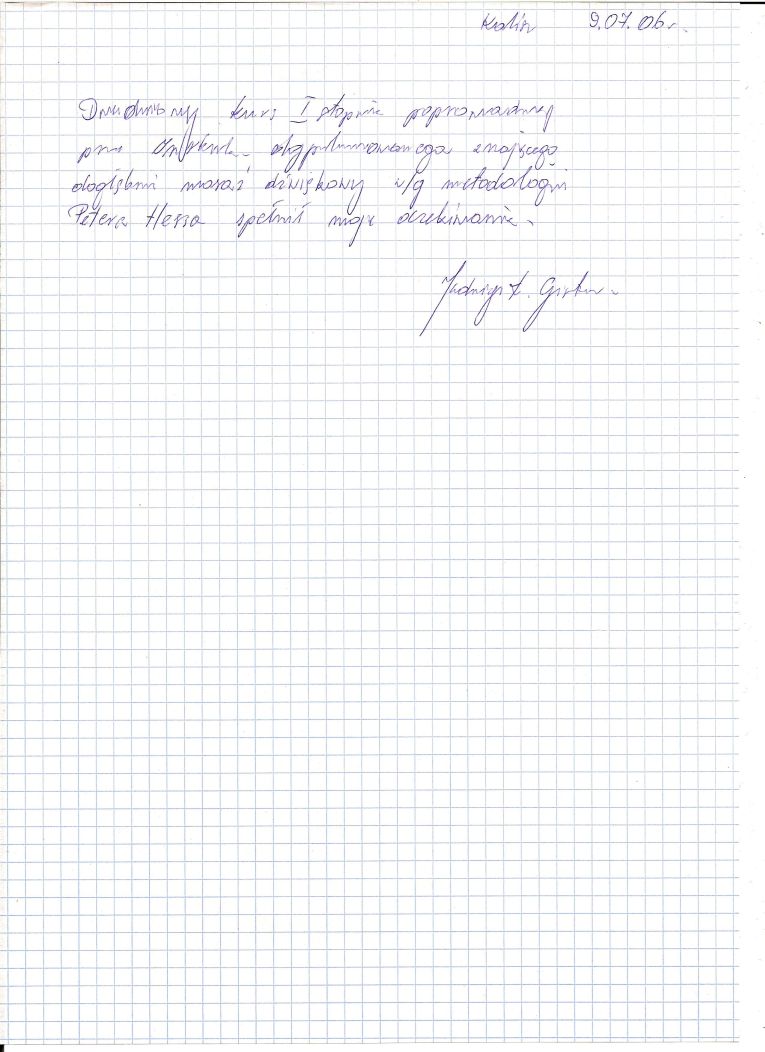 Kalisz 9.07.06r.
Dwudniowy kurs I stopnia poprowadzony
przez dyplomowanego znającego
dogłębnie masaż dźwiękowy w/g metodologii
Petera Hessa spełnił moje oczekiwania.
Jadwiga